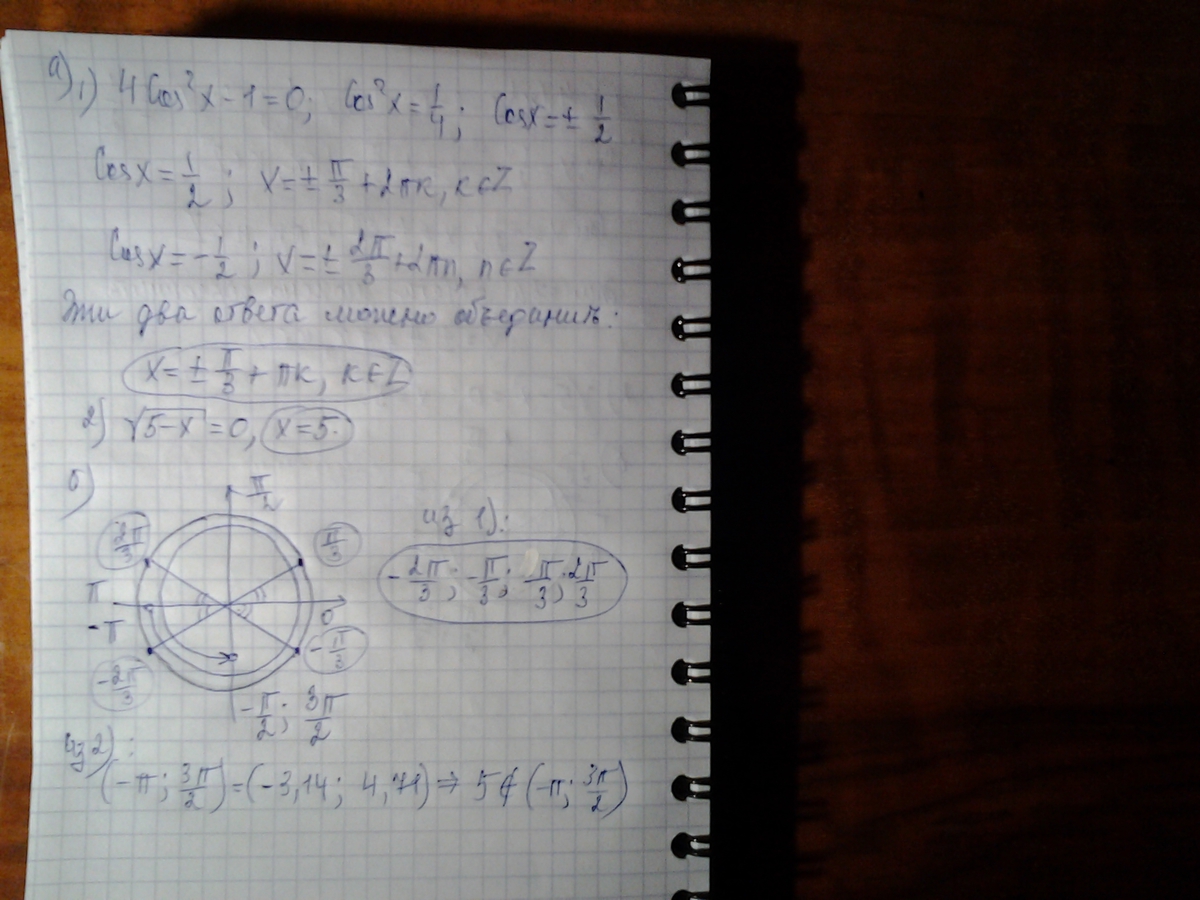 а) 1) 4 Cos²x - 1 = 0; Cos²x = 1/4; Cosx = ± 1/2
Cosx = 1/2; x = ± π/3 + 2πк, к ∈ Z
Cosx = - 1/2; x = ± 2π/3 + 2πn, n ∈ Z
Эти два ответа можно объединить:
x = ± π/3 + πк, к ∈ Z
2) √5-x = 0, x = 5.
б)
π/2
2π/3
π/3
из 1):
- 2π/3; - π/3; π/3; 2π/3
π
0
- π
- π/3
- 2π/3
- π/2; 3π/2
из 2):
(-π; 3π/2) = (-3,14; 4,71) ⇒ 5 ∉ (-π; 3π/2)